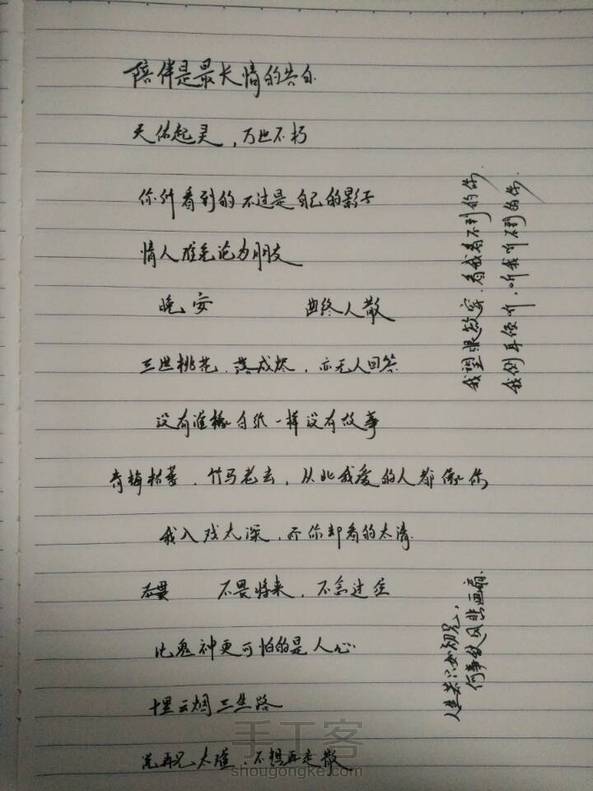 陪伴是最长情的告白
天佑起灵，万世不朽
你所看到的不过是自己的影子
情人难免沦为朋友
晚安 曲终人散
三世桃花，落成烬，亦无人回答
没有谁像白纸一样没有故事
青梅枯萎，竹马老去，从此我爱的人都像你
我入戏太深，而你却看的太清
不畏将来，不念过往
比鬼神更可怕的是人心
十里云烟三生路
说再见太难，不想再走散
我望眼欲穿，看我看不到的你
我倒耳倾听，听我听不到的你
人生若只如初见，
何事秋风悲画扇
手工客
shougongke.com